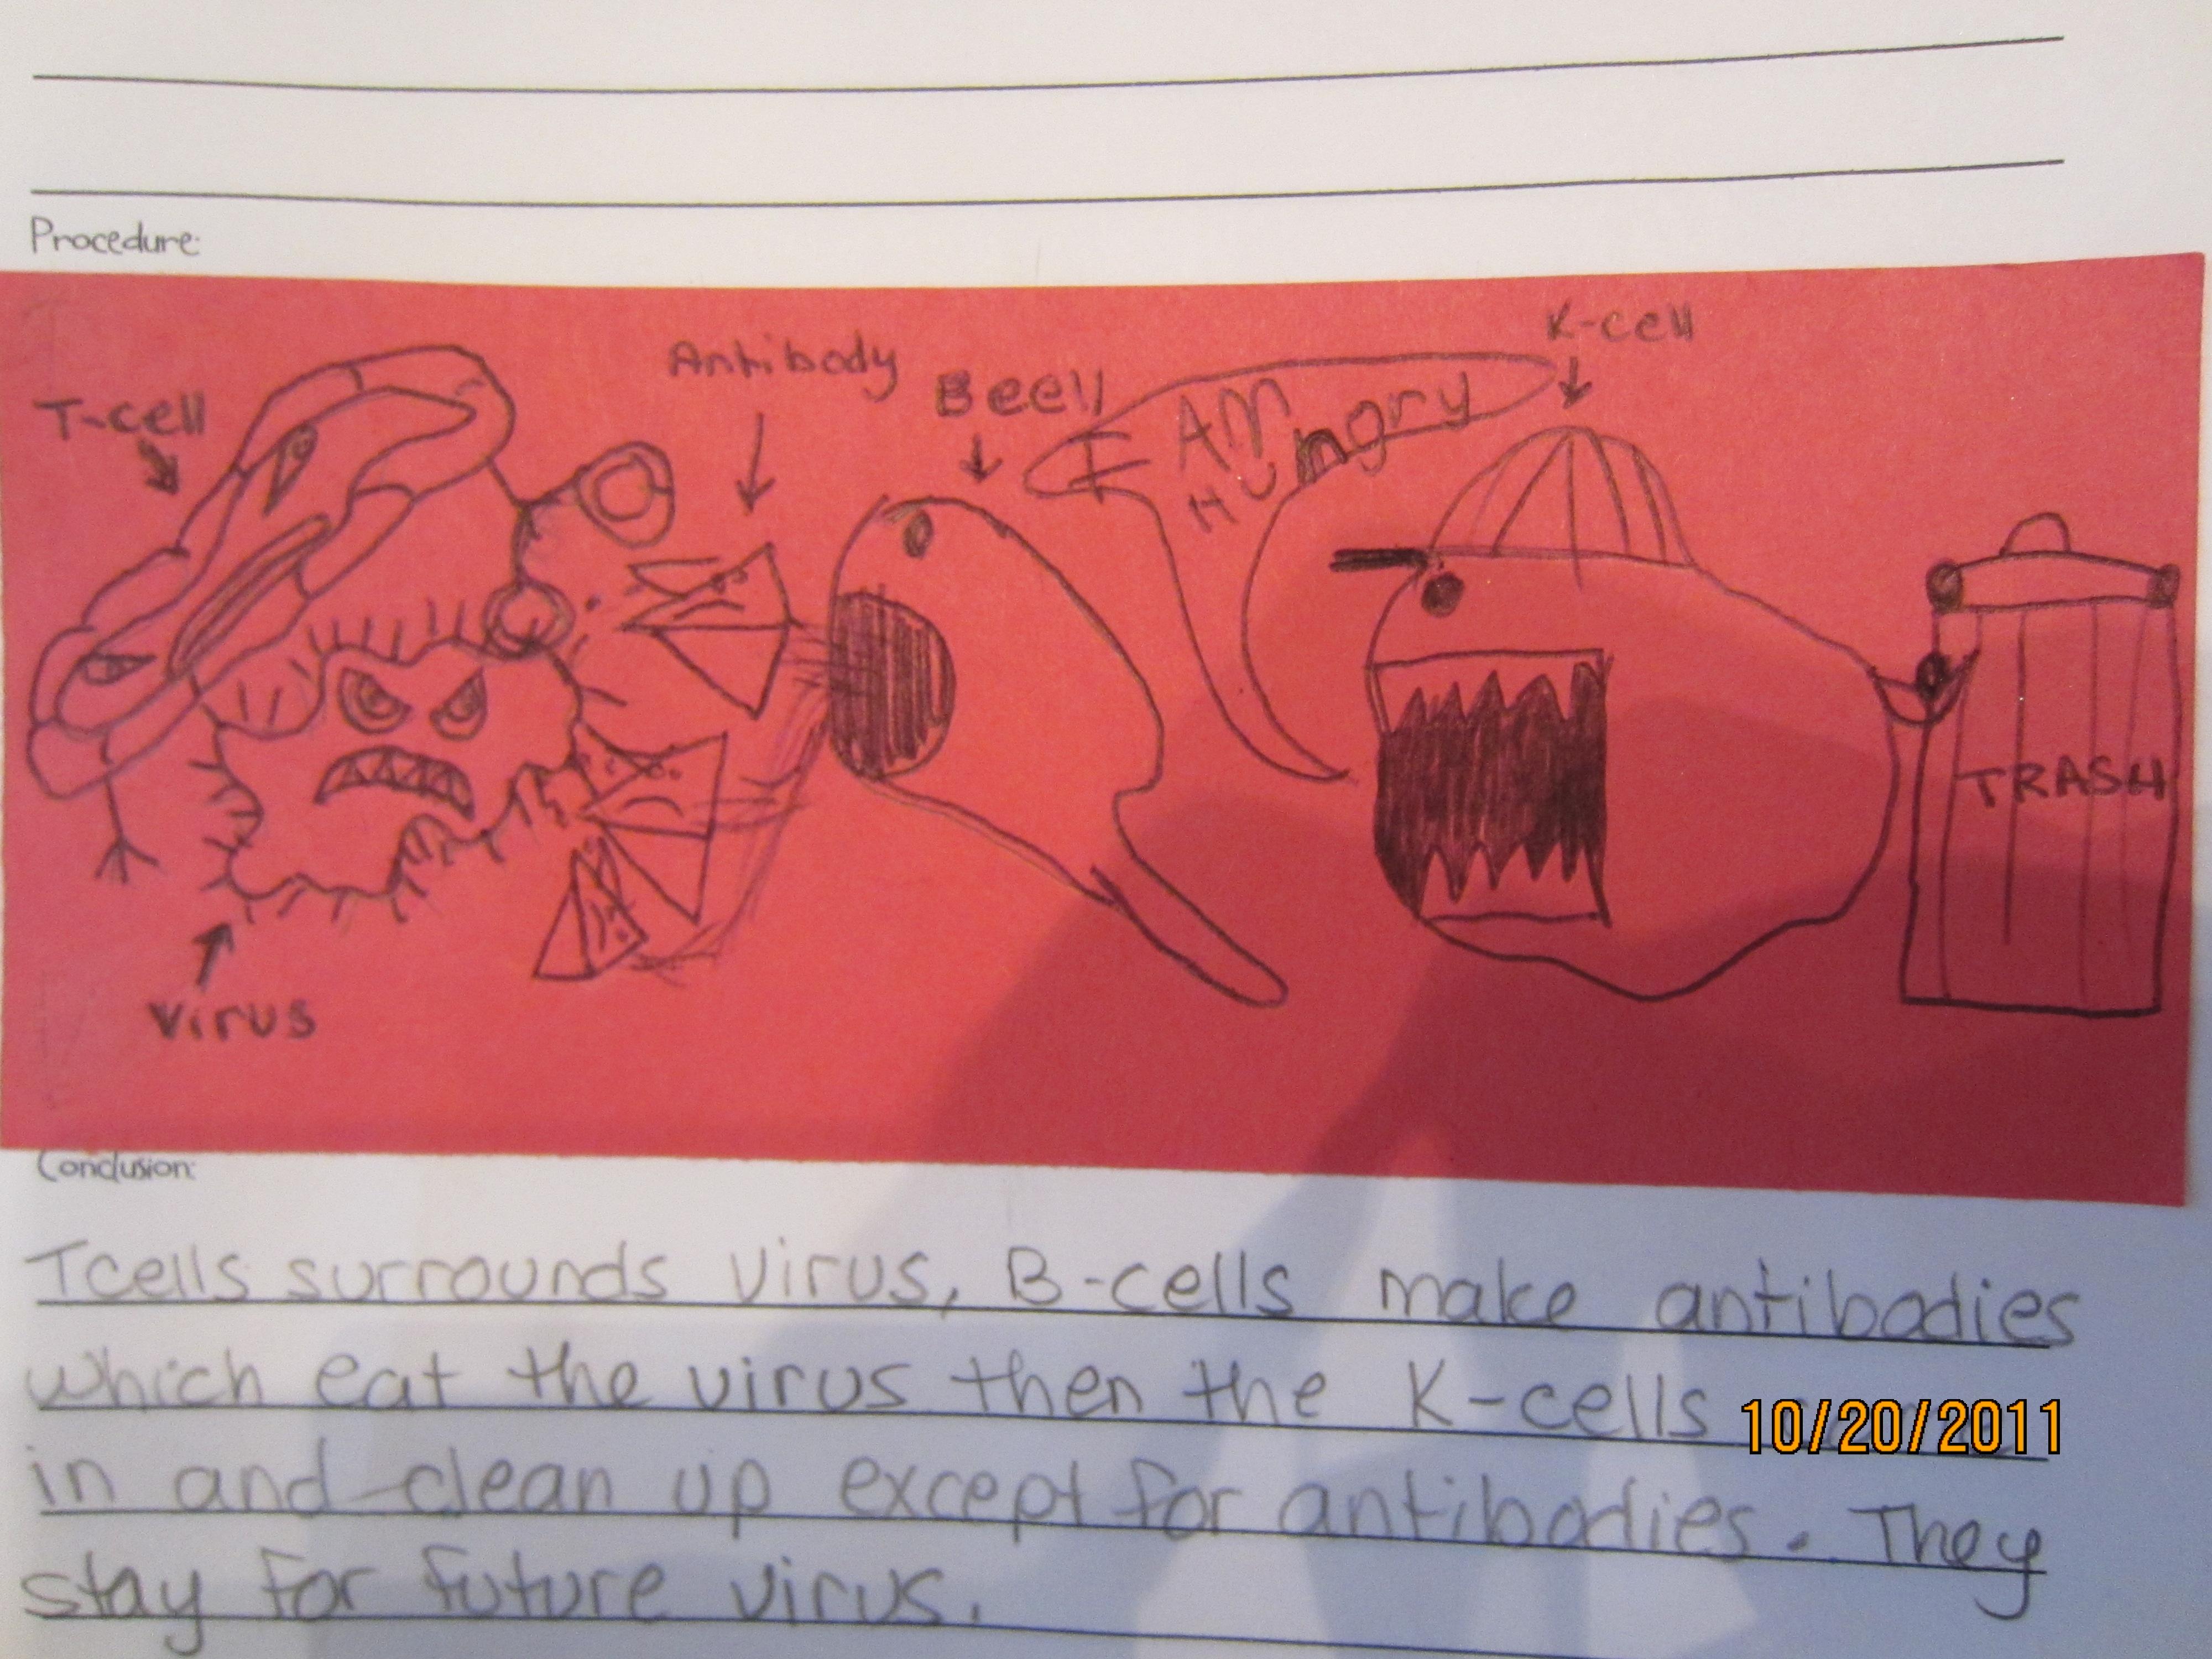 Procedure:
T-cell
Antibody
B cell
I AM
HUngry
K-cell
TRASH
Virus
Conclusion:
Tcells surrounds virus, B-cells make antibodies
which eat the virus then the K-cells
10/20/2011
in and clean up except for antibodies. They
stay for future virus.